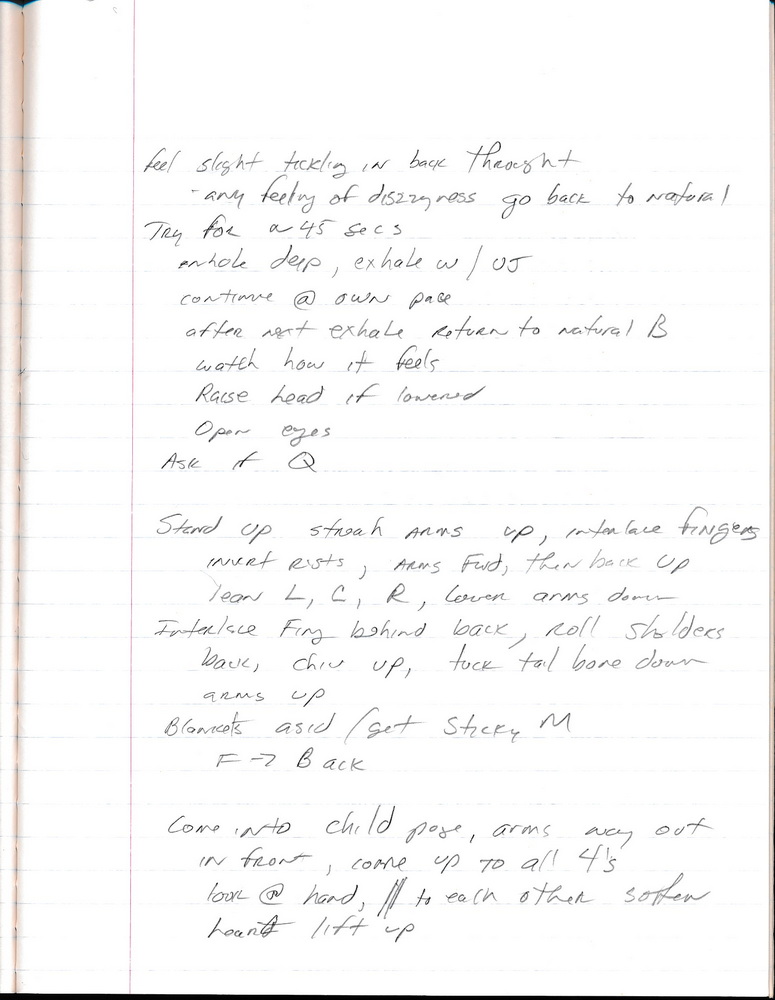 feel slight tickling in back throught
- any feeling of diszzyness go back to natural
Try for ~ 45 secs
inhale deep, exhale w/ UJ
continue @ own pace
after next exhale return to natural B
watch how it feels
Raise head if lowered
Open eyes
Ask if Q
Stand up streah arms up, interlace fingers
invert rists, arms Fwd, then back up
lean L, C, R, lower arms down
Interlace Fing behind back, roll sholders
back, chin up, tuck tail bone down
arms up
Blankets asid / get Sticky M
F -> Back
Come into child pose, arms way out
in front, come up to all 4's
look @ hand, || to each other soften
heart lift up